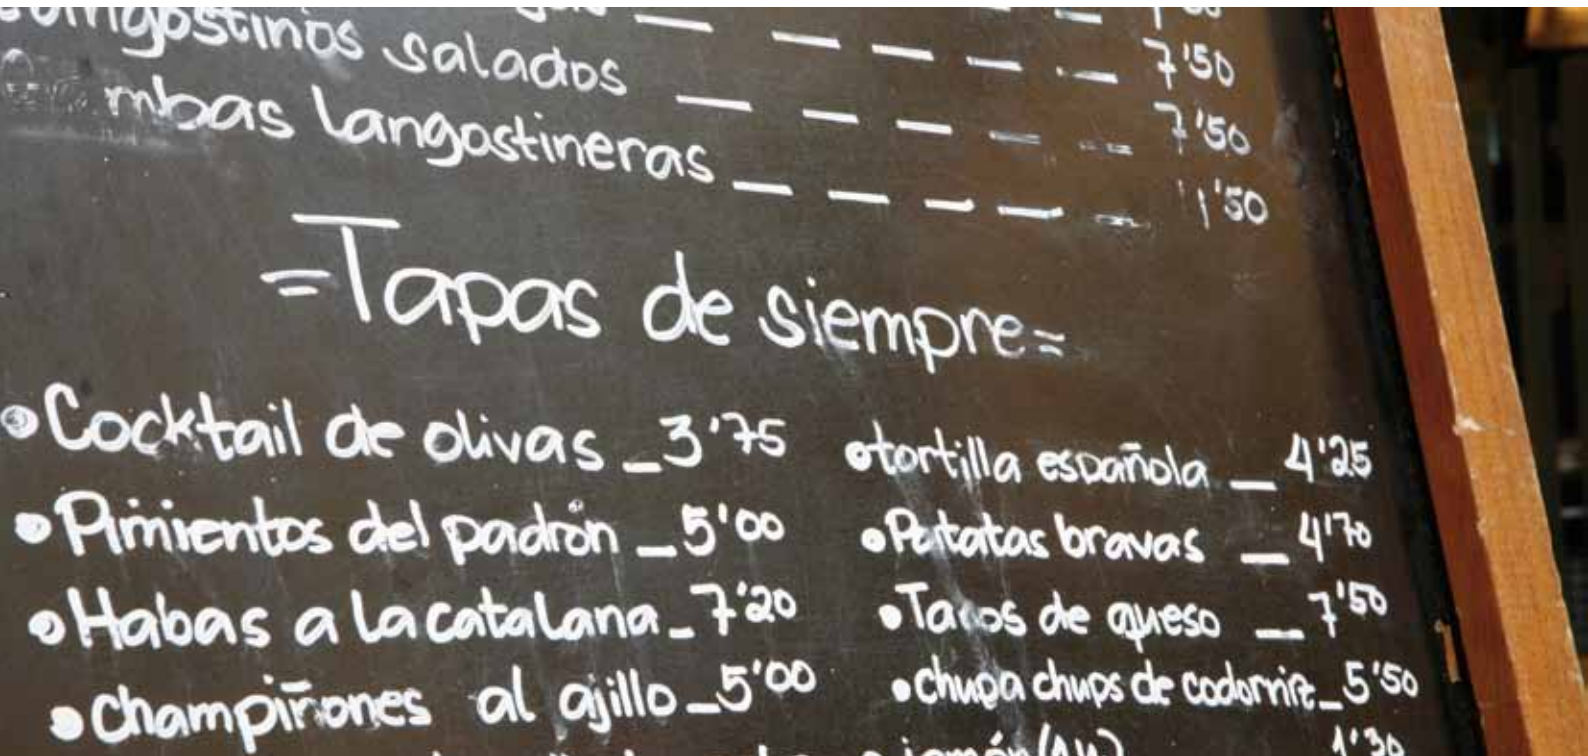 salados 7'50
langostineras 7'50
1'50
=Tapas de siempre=
Cocktail de olivas _ 3'75
Pimientos del padrón _ 5'00
Habas a la catalana _ 7'20
champiñones al ajillo _ 5'00
tortilla española _ 4'25
Patatas bravas _ 4'70
Tacos de queso _ 7'50
chupa chups de codorniz _ 5'50
jamón
1'30